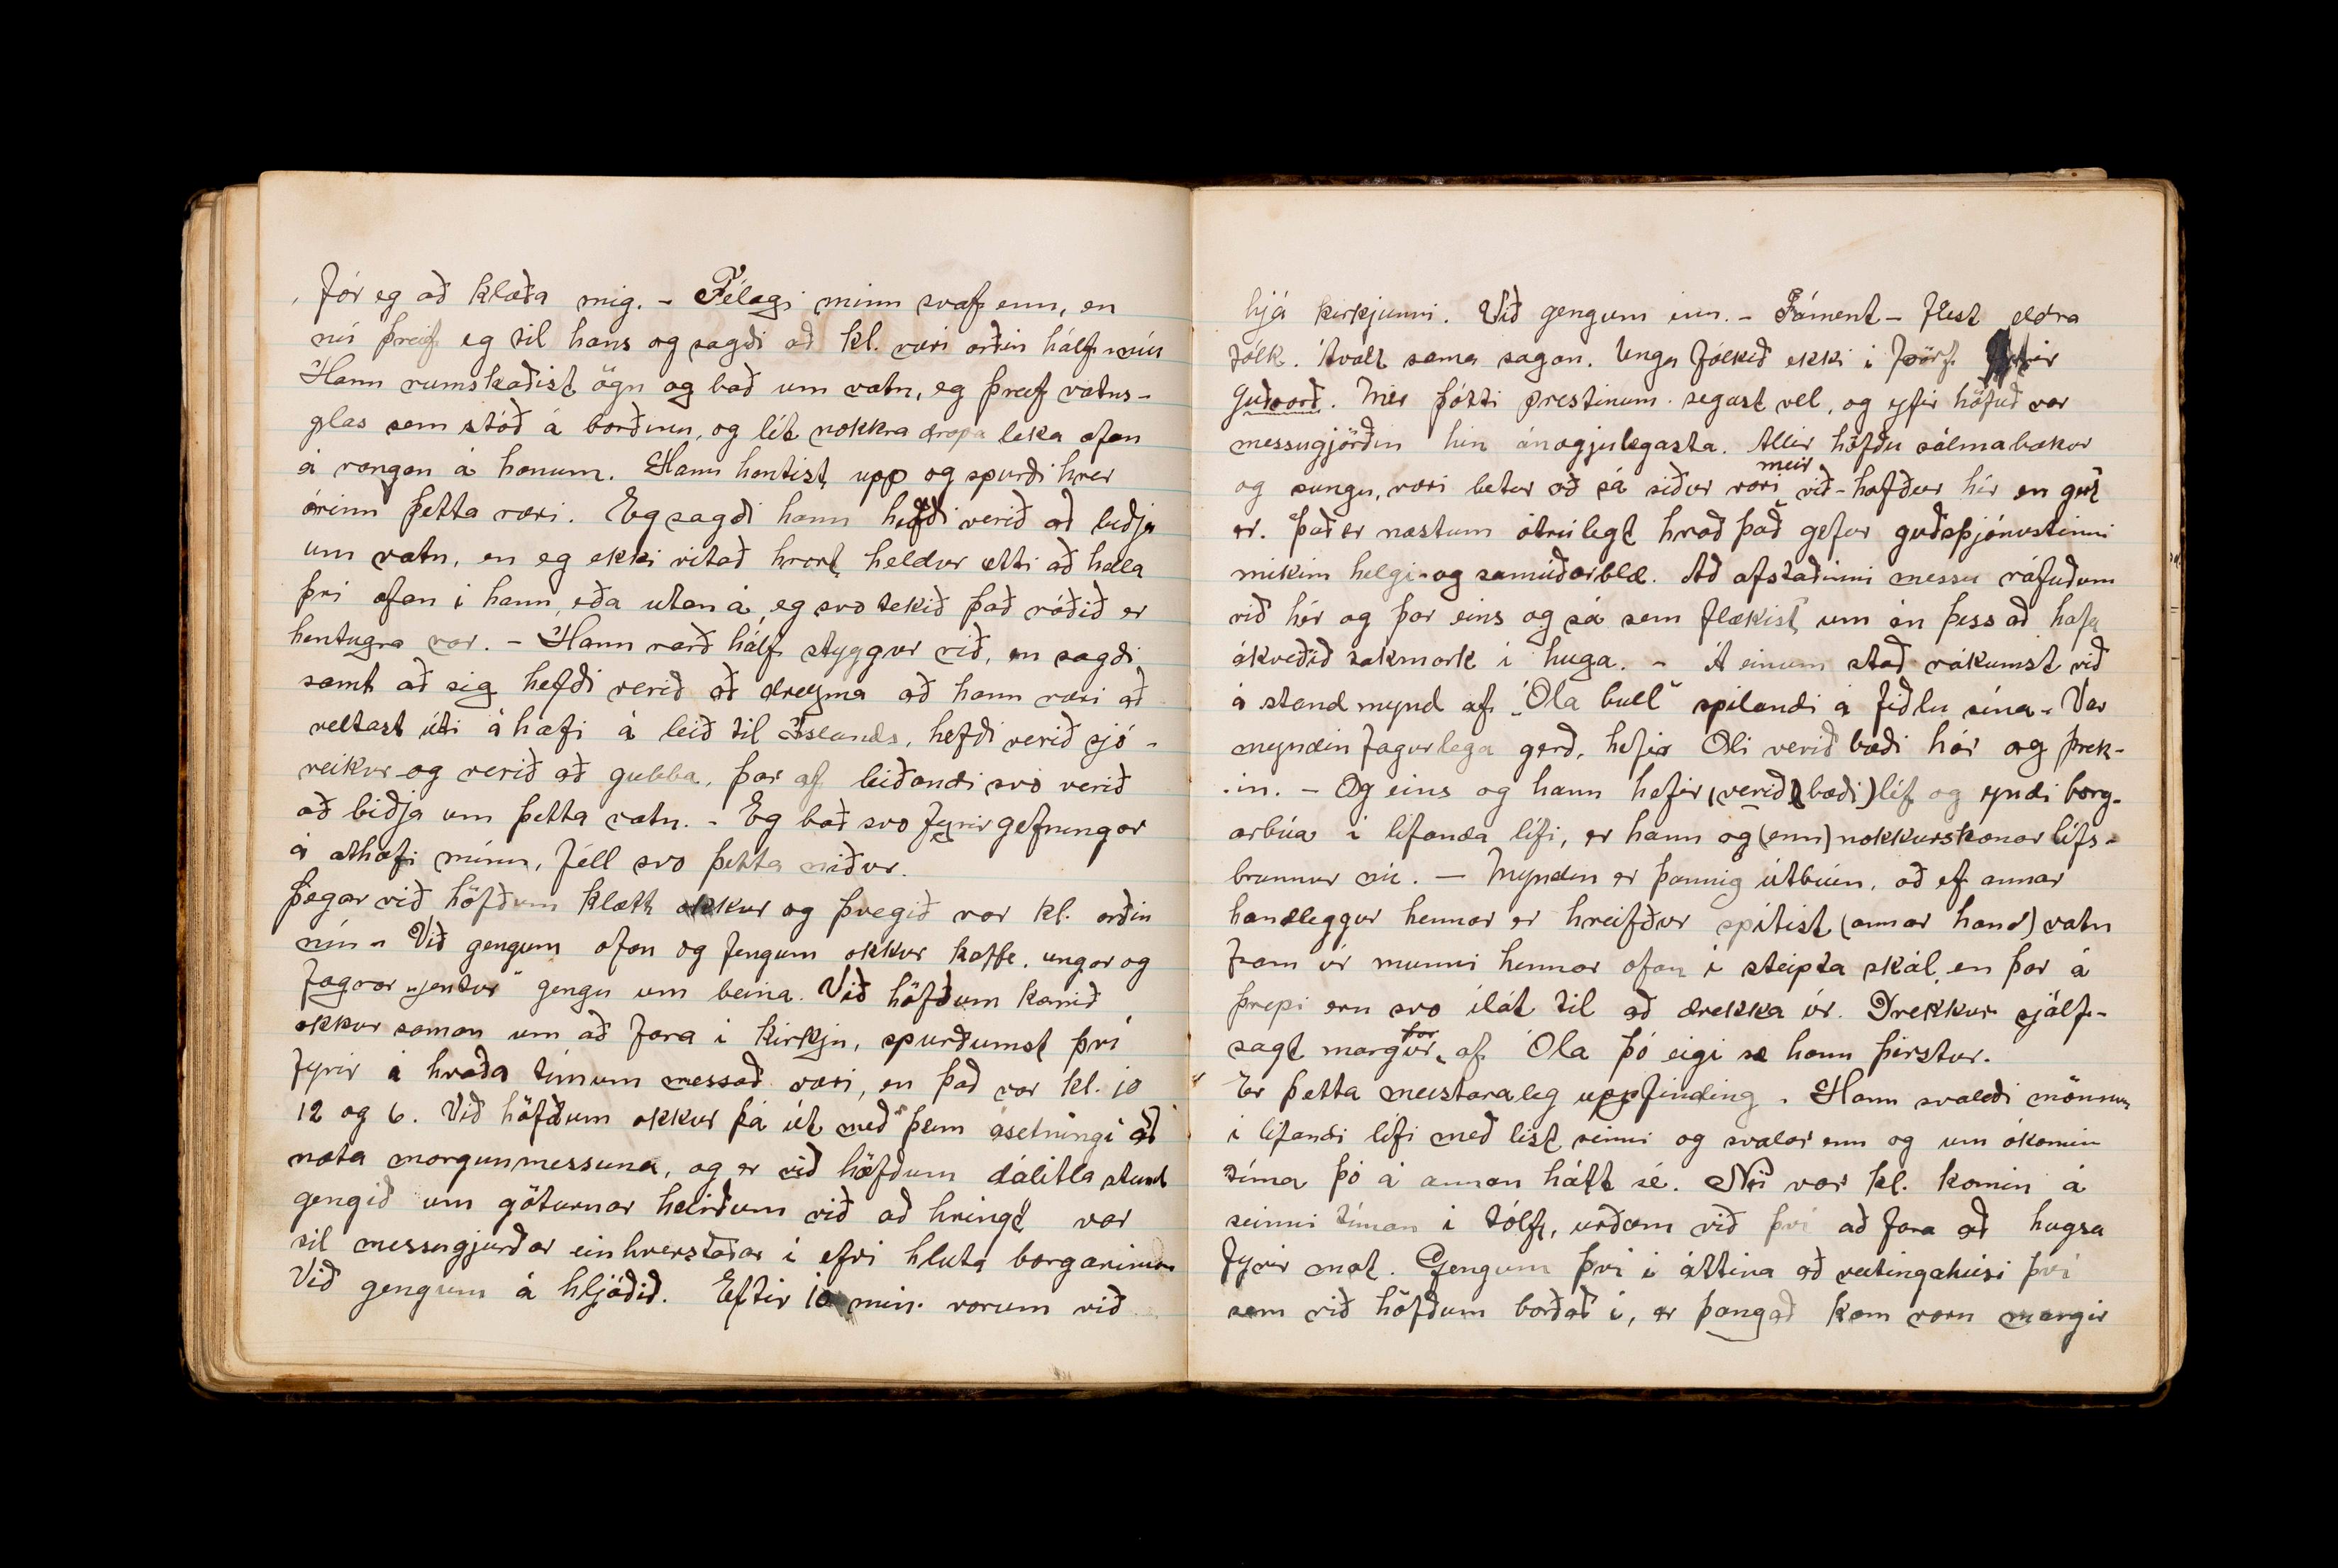 fór eg að klæða mig. - Félagi minn svaf enn, en
nú þreif eg til hans og sagði að kl. væri orðin hálf níu
Hann rumskaðist ögn og bað um vatn, eg þreif vatns-
glas sem stóð á borðinu, og lét nokkra dropa leka ofan
á vangan á honum. Hann hentist upp og spurði hver
árinn þetta væri. Eg sagði hann hefði verið að biðja
um vatn, en eg ekki vitað hvort heldur ætti að hella
því ofan í hann eða utan á eg svo tekið það ráðið er
hentugra var. - Hann varð hálf styggur við, en sagði
samt að sig hefði verið að dreyma að hann væri að
veltast úti á hafi á leið til Íslands, hefði verið sjó-
veikur og verið að gubba, þar af leiðandi svo verið
að biðja um þetta vatn. - Eg bað svo fyrirgefningar
á athæfi mínu, féll svo þetta niður.
Þegar við höfðum klætt okkur og þvegið var kl. orðin
níu - Við gengum ofan og fengum okkur kaffe. ungar og
fagrar „jentur" gengu um beina. Við höfðum komið
okkur saman um að fara í kirkju, spurðumst því
fyrir á hvaða tímum messað væri, en það var kl. 10
12 og 6. Við höfðum okkur þá út með þeim ásetningi að
nota morgunmessuna, og er við höfðum dálitla stund
gengið um göturnar heirðum við að hringt var
til messugjurðar einhverstaðar í efri hluta borgarinnar
Við gengum á hljóðið. Eftir 10 mín. vorum við
hjá kirkjunni. Við gengum inn. - Fáment - flest eldra
fólk. Ávalt sama sagan. Unga fólkið ekki í þörf fyrir
Guðsorð. Mér þótti prestinum segast vel, og yfir höfuð var
messugjörðin hin ánægjulegasta. Allir höfðu sálmabækur
og sungu, væri betur að sá siður væri meir við-hafður hér en gert
er. Það er næstum ótrúlegt hvað það gefur guðsþjónustinni
mikinn helgi- og samúðarblæ. Að afstaðinni messu ráfuðum
við hér og þar eins og sá sem flækist um án þess að hafa
ákveðið takmark í huga. - Á einum stað rákumst við
á standmynd af „Óla bull" spilandi á fiðlu sína. Var
myndin fagurlega gerð, hefir Óli verið bæði hár og þrek-
in. - Og eins og hann hefir (verið bæði) líf og yndi borg-
arbúa í lifanda lífi, er hann og (enn) nokkurskonar lífs-
brunnur nú. - Myndin er þannig útbúin, að ef annar
handleggur hennar er hreifður spítist (annar hand) vatn
fram úr munni hennar ofan í steipta skál, en þar á
þrepi eru svo ílát til að drekka úr. Drekkur sjálf-
sagt margur þar af Óla þó eigi sé hann þirstur.
Er þetta meistaraleg uppfinding. Hann svalaði mönnum
í lifandi lífi með list sinni og svalar enn og um ókomin
tíma þó á annan hátt sé. Nú var kl. komin á
seinni tíman í tólf, urðum við því að fara að hugsa
fyrir mat. Gengum því í áttina að veitingahúsi því
sem við höfðum borðað í, er þangað kom voru margir